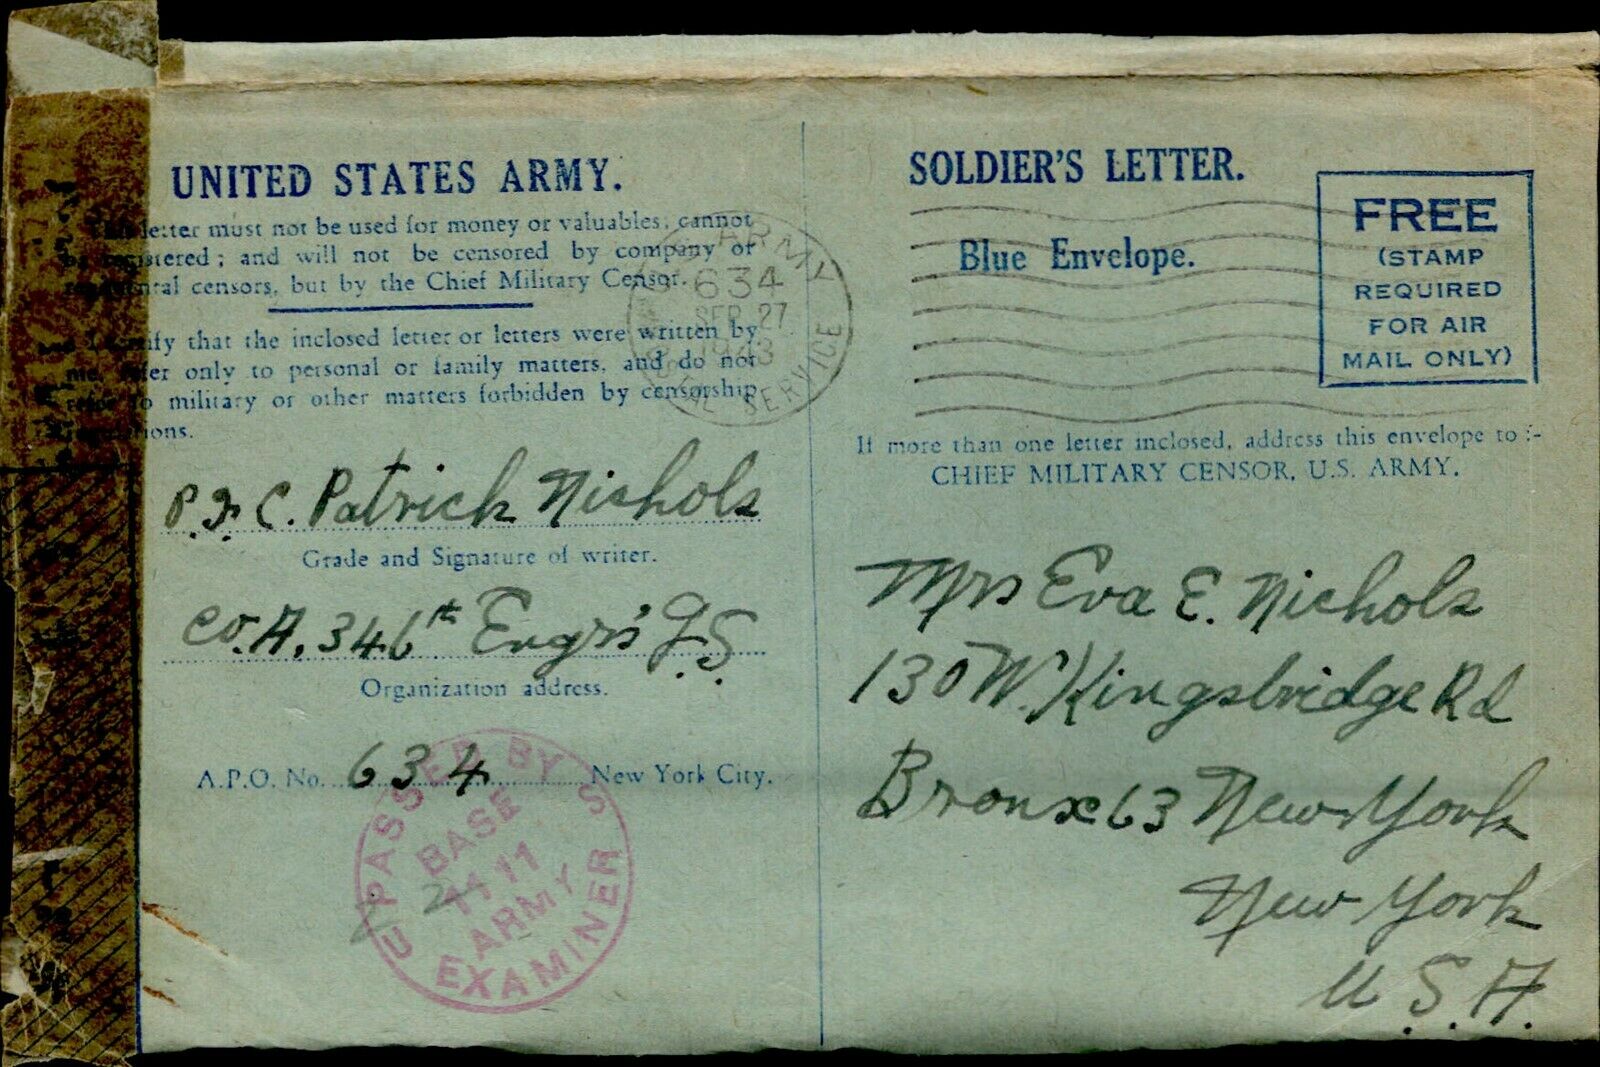 UNITED STATES ARMY.
This letter must not be used for money or valuables, cannot
be registered; and will not be censored by company or
regimental censors, but by the Chief Military Censor.
I certify that the inclosed letter or letters were written by
me, refer only to personal or family matters, and do not
refer to military or other matters forbidden by censorship
regulations.
P.F.C. Patrick Nichols
Grade and Signature of writer.
Co. A, 346th Engrs' G.S.
Organization address.
A.P.O. No. 634 New York City.
PASSED BY
BASE
1111
ARMY
EXAMINER
U S
U.S. ARMY
634
SEP 27
1943
POSTAL SERVICE
SOLDIER'S LETTER.
Blue Envelope.
FREE
(STAMP
REQUIRED
FOR AIR
MAIL ONLY)
If more than one letter inclosed, address this envelope to :-
CHIEF MILITARY CENSOR, U.S. ARMY.
Mrs Eva E. Nichols
130 W. Kingsbridge Rd
Bronx 63 New York
New York
U.S.A.